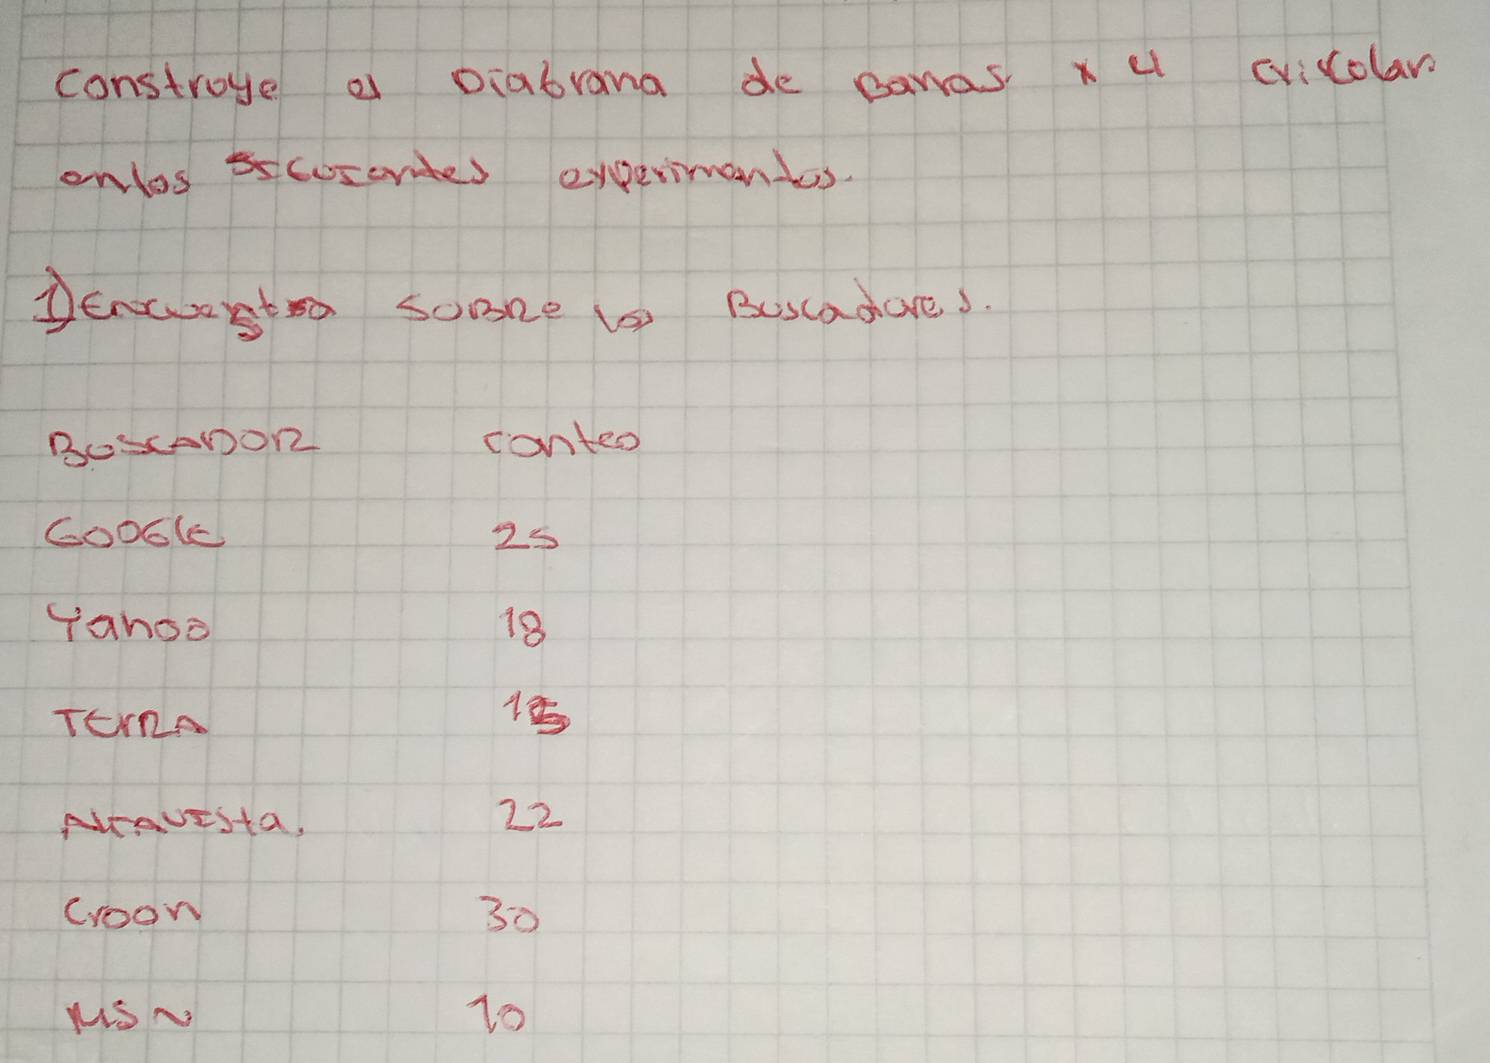 Construye el Diagrama de Barras y el circular
en los siguientes experimentos.
1) Encuesta sobre los Buscadores.
BUSCADOR conteo
GOOGLE 25
Yahoo 18
TERRA 15
Altavista. 22
Croon 30
MSN 10